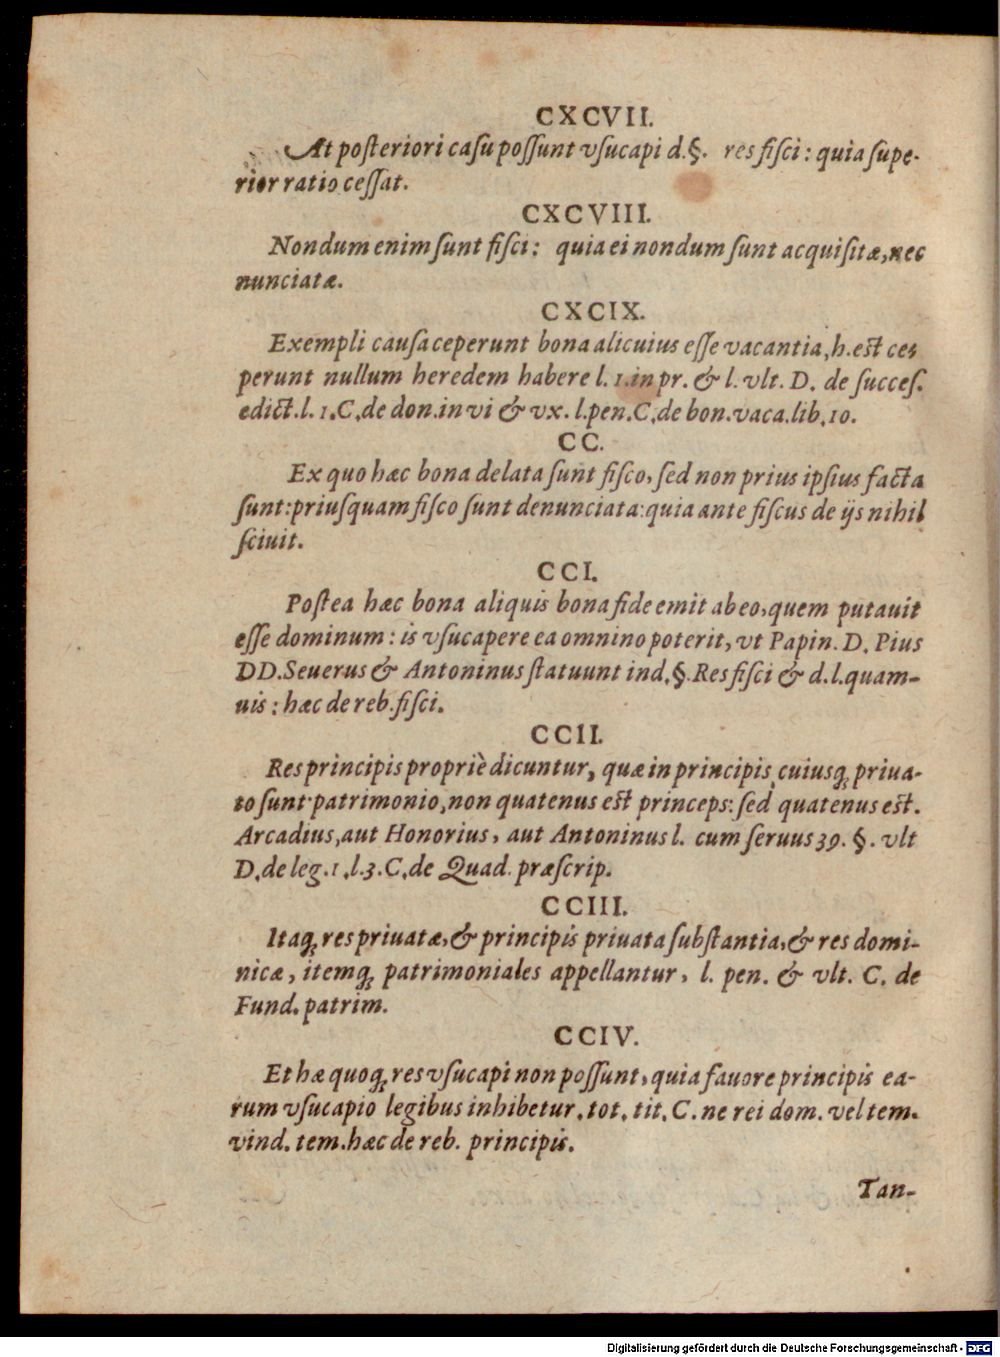 CXCVII.
At poſteriori caſu poſſunt vſucapi d.§. res fiſci: quia ſupe-
rior ratio ceſſat.
CXCVIII.
Nondum enim ſunt fiſci: quia ei nondum ſunt acquiſitæ, nec
nunciatæ.
CXCIX.
Exempli cauſa ceperunt bona alicuius eſſe vacantia, h. eſt ce-
perunt nullum heredem habere l. 1. in pr. & l. vlt. D. de ſucceſ.
edict. l. 1. C. de don. in vi & vx. l. pen. C. de bon. vaca. lib. 10.
CC.
Ex quo hæc bona delata ſunt fiſco, ſed non prius ipſius facta
ſunt: priuſquam fiſco ſunt denunciata: quia ante fiſcus de ijs nihil
ſciuit.
CCI.
Poſtea hæc bona aliquis bona fide emit ab eo, quem putauit
eſſe dominum: is vſucapere ea omnino poterit, vt Papin. D. Pius
DD. Seuerus & Antoninus ſtatuunt in d. §. Res fiſci & d. l. quam-
uis: hæc de reb. fiſci.
CCII.
Res principis propriè dicuntur, quæ in principis cuiusq; priua-
to ſunt patrimonio, non quatenus eſt princeps: ſed quatenus eſt.
Arcadius, aut Honorius, aut Antoninus l. cum ſeruus 39. §. vlt
D. de leg. 1. l. 3. C. de Quad. præſcrip.
CCIII.
Itaq; res priuatæ, & principis priuata ſubſtantia, & res domi-
nicæ, itemq; patrimoniales appellantur, l. pen. & vlt. C. de
Fund. patrim.
CCIV.
Et hæ quoq; res vſucapi non poſſunt, quia fauore principis ea-
rum vſucapio legibus inhibetur. tot. tit. C. ne rei dom. vel tem.
vind. tem. hæc de reb. principis.
Tan-
Digitalisierung gefördert durch die Deutsche Forschungsgemeinschaft - DFG